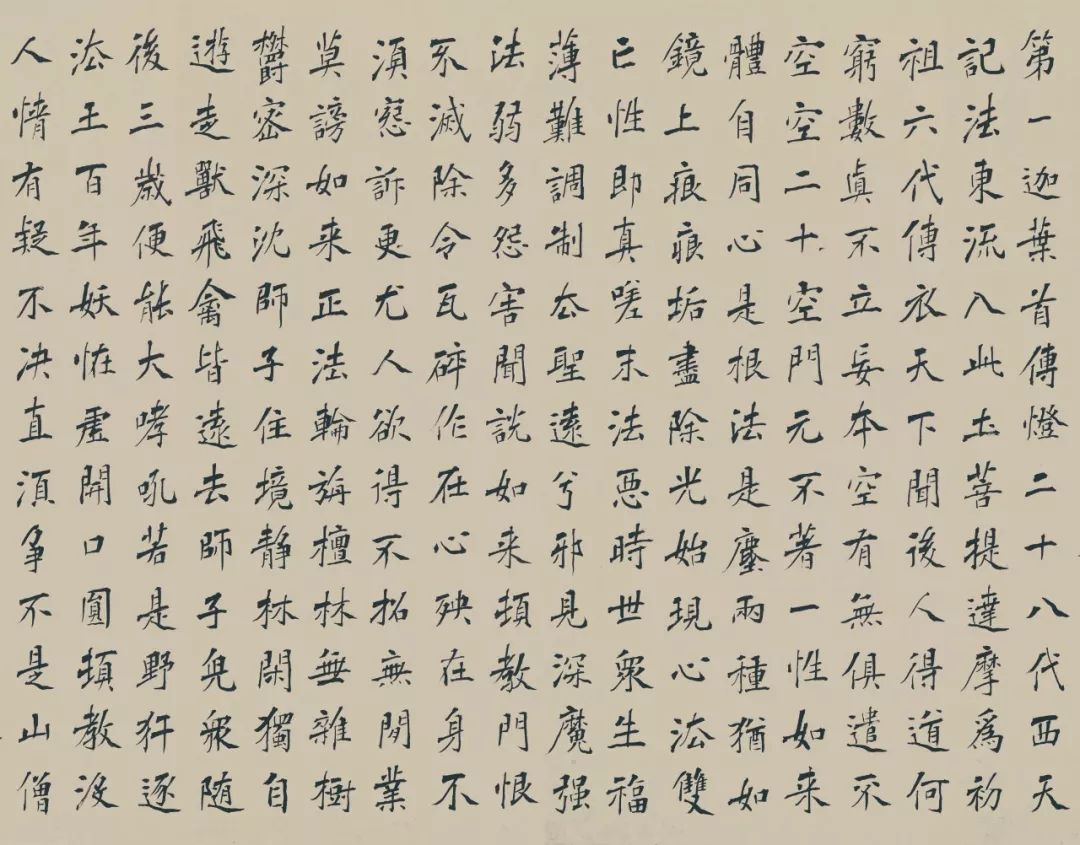 第一迦葉首傳燈二十八代西天
記法東流入此土菩提達摩爲初
祖六代傳衣天下聞後人得道何
窮數眞不立妄本空有無俱遣不
空空二十空門元不著一性如来
體自同心是根法是塵兩種猶如
鏡上痕痕垢盡除光始現心法雙
亡性即真嗟末法惡時世衆生福
薄難調制去聖遠兮邪見深魔强
法弱多怨害聞說如来頓教門恨
不滅除令瓦碎作在心殃在身不
須怨訴更尤人欲得不招無間業
莫謗如来正法輪旃檀林無雜樹
欝密深沈師子住境静林閑獨自
遊走獸飛禽皆遠去師子兒衆随
後三歲便能大哮吼若是野犴逐
法王百年妖怪虛開口圓頓教没
人情有疑不决直須争不是山僧